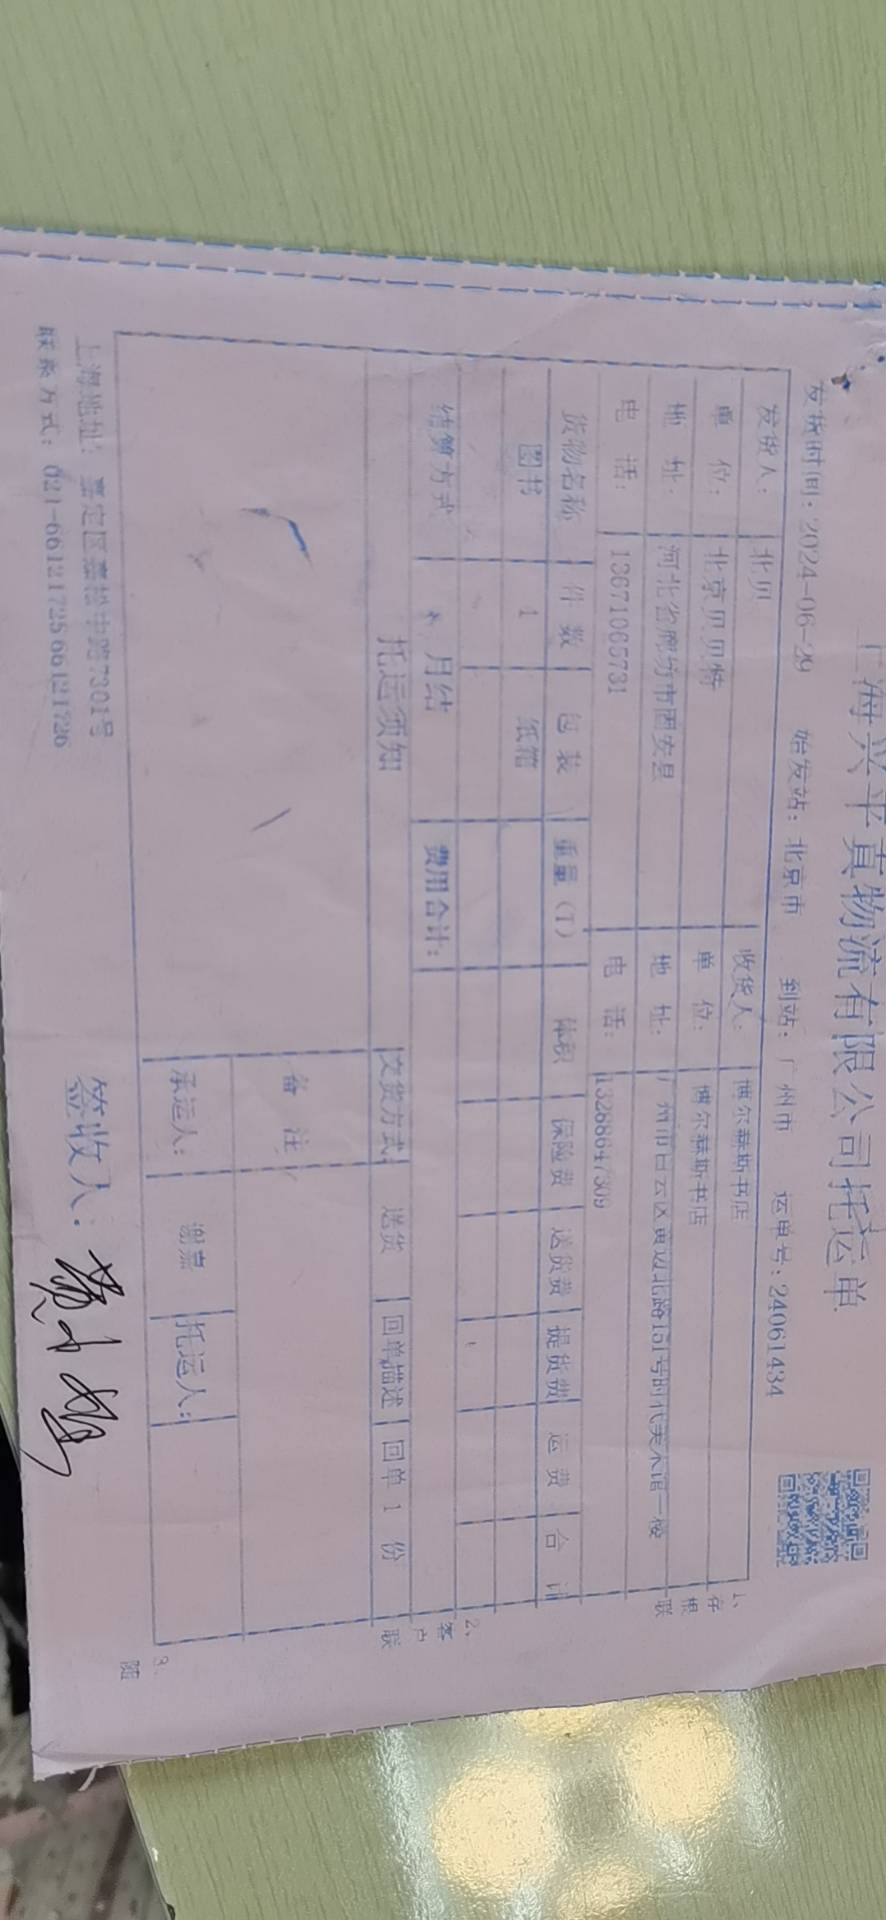 上海兴平真物流有限公司托运单
发货时间: 2024-06-29 始发站: 北京市 到站: 广州市 运单号: 24061434
发货人: 北贝 收货人: 博尔赫斯书店
单 位: 北京贝贝特 单 位: 博尔赫斯书店
地 址: 河北省廊坊市固安县 地 址: 广州市白云区黄边北路151号时代美术馆一楼
电 话: 13671065731 电 话: 13288647309
货物名称 件数 包装 重量(T) 体积 保险费 送货费 提货费 运费 合计
图书 1 纸箱
结算方式 月结 费用合计:
托运须知 交货方式 送货 回单描述 回单 1 份
备 注
承运人: 谢嘉 托运人:
上海地址: 嘉定区嘉松中路7301号
联系方式: 021-66121725 66121726
签收人:
1、存根联
2、客户联
3、随